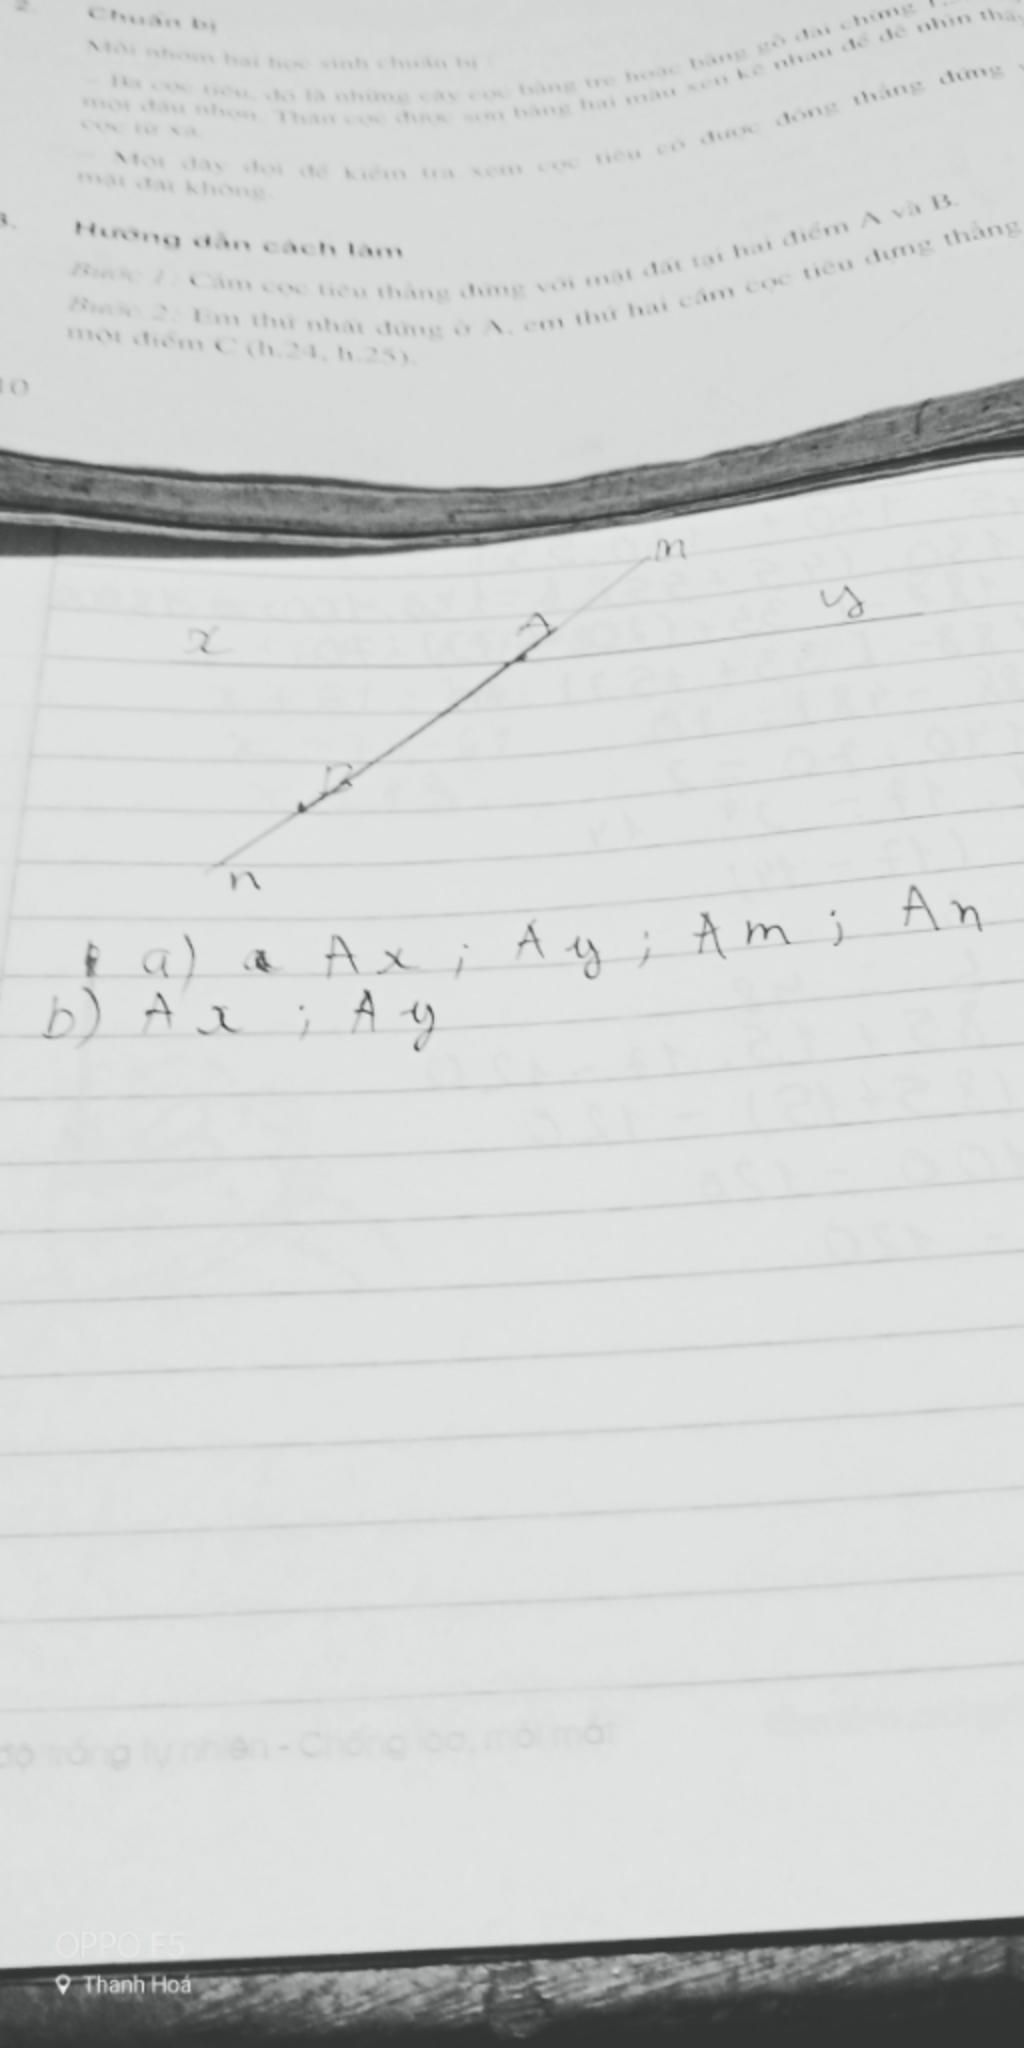 2. Chuẩn bị
Mỗi nhóm hai học sinh chuẩn bị :
– Ba cọc tiêu, đó là những cây cọc bằng tre hoặc bằng gỗ dài chừng
một đầu nhọn. Thân cọc được sơn bằng hai màu xen kẽ nhau để dễ nhìn thấy
cọc từ xa.
– Một dây dọi để kiểm tra xem cọc tiêu có được đóng thẳng đứng
mặt đất không.
3. Hướng dẫn cách làm
Bước 1 : Cắm cọc tiêu thẳng đứng với mặt đất tại hai điểm A và B.
Bước 2 : Em thứ nhất đứng ở A, em thứ hai cắm cọc tiêu dựng thẳng
một điểm C (h.24, h.25).
10
m
A
y
x
B
n
a) Ax ; Ay ; Am ; An
b) Ax ; Ay
độ trắng tự nhiên - Chống lóa, mỏi mắt
OPPO F5
Thanh Hoá